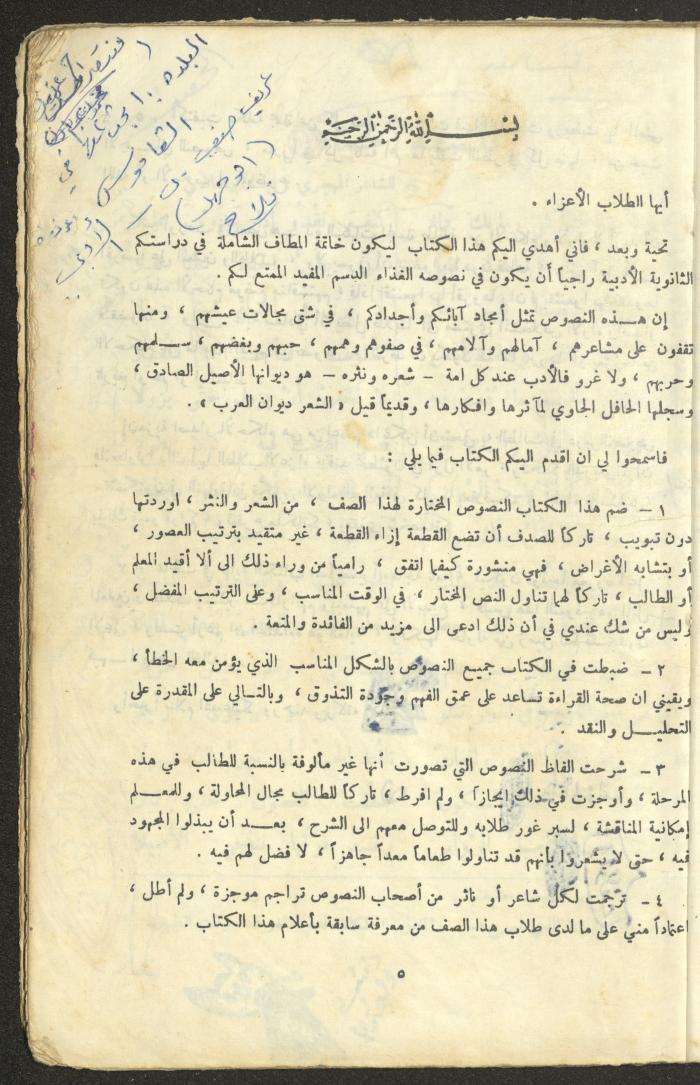 بسم الله الرحمن الرحيم
أيها الطلاب الأعزاء .
تحية وبعد ، فاني أهدي اليكم هذا الكتاب ليكون خاتمة المطاف الشاملة في دراستكم
الثانوية الأدبية راجياً أن يكون في نصوصه الغذاء الدسم المفيد الممتع لكم .
إن هـــذه النصوص تمثل أمجاد آبائكم وأجدادكم ، في شتى مجالات عيشهم ، ومنها
تقفون على مشاعرهم ، آمالهم وآلامهم ، في صفوهم وهمهم ، حبهم وبغضهم ، ســلمهم
وحربهم ، ولا غرو فالأدب عند كل امة – شعره ونثره – هو ديوانها الأصيل الصادق ،
وسجلها الحافل الحاوي لمآثرها وافكارها ، وقديماً قيل « الشعر ديوان العرب » .
فاسمحوا لي ان اقدم اليكم الكتاب فيما يلي :
١ – ضم هذا الكتاب النصوص المختارة لهذا الصف ، من الشعر والنثر ، اوردتها
دون تبويب ، تاركاً للصدف أن تضع القطعة إزاء القطعة ، غير متقيد بترتيب العصور ،
أو بتشابه الأغراض ، فهي منشورة كيفما اتفق ، رامياً من وراء ذلك الى ألا أقيد المعلم
أو الطالب ، تاركاً لهما تناول النص المختار ، في الوقت المناسب ، وعلى الترتيب المفضل ،
وليس من شك عندي في أن ذلك ادعى الى مزيد من الفائدة والمتعة .
٢ – ضبطت في الكتاب جميع النصوص بالشكل المناسب الذي يؤمن معه الخطأ ،
ويقيني ان صحة القراءة تساعد على عمق الفهم وجودة التذوق ، وبالتــالي على المقدرة على
التحليـــل والنقد .
٣ – شرحت الفاظ النصوص التي تصورت أنها غير مألوفة بالنسبة للطالب في هذه
المرحلة ، وأوجزت في ذلك ايجازاً ، ولم افرط ، تاركاً للطالب مجال المحاولة ، وللمعــلم
إمكانية المناقشة ، لسبر غور طلابه وللتوصل معهم الى الشرح ، بعــد أن يبذلوا المجهود
فيه ، حتى لا يشعروا بأنهم قد تناولوا طعاماً معداً جاهزاً ، لا فضل لهم فيه .
٤ – ترجمت لكل شاعر أو ناثر من أصحاب النصوص تراجم موجزة ، ولم أطل ،
اعتماداً مني على ما لدى طلاب هذا الصف من معرفة سابقة بأعلام هذا الكتاب .
٥